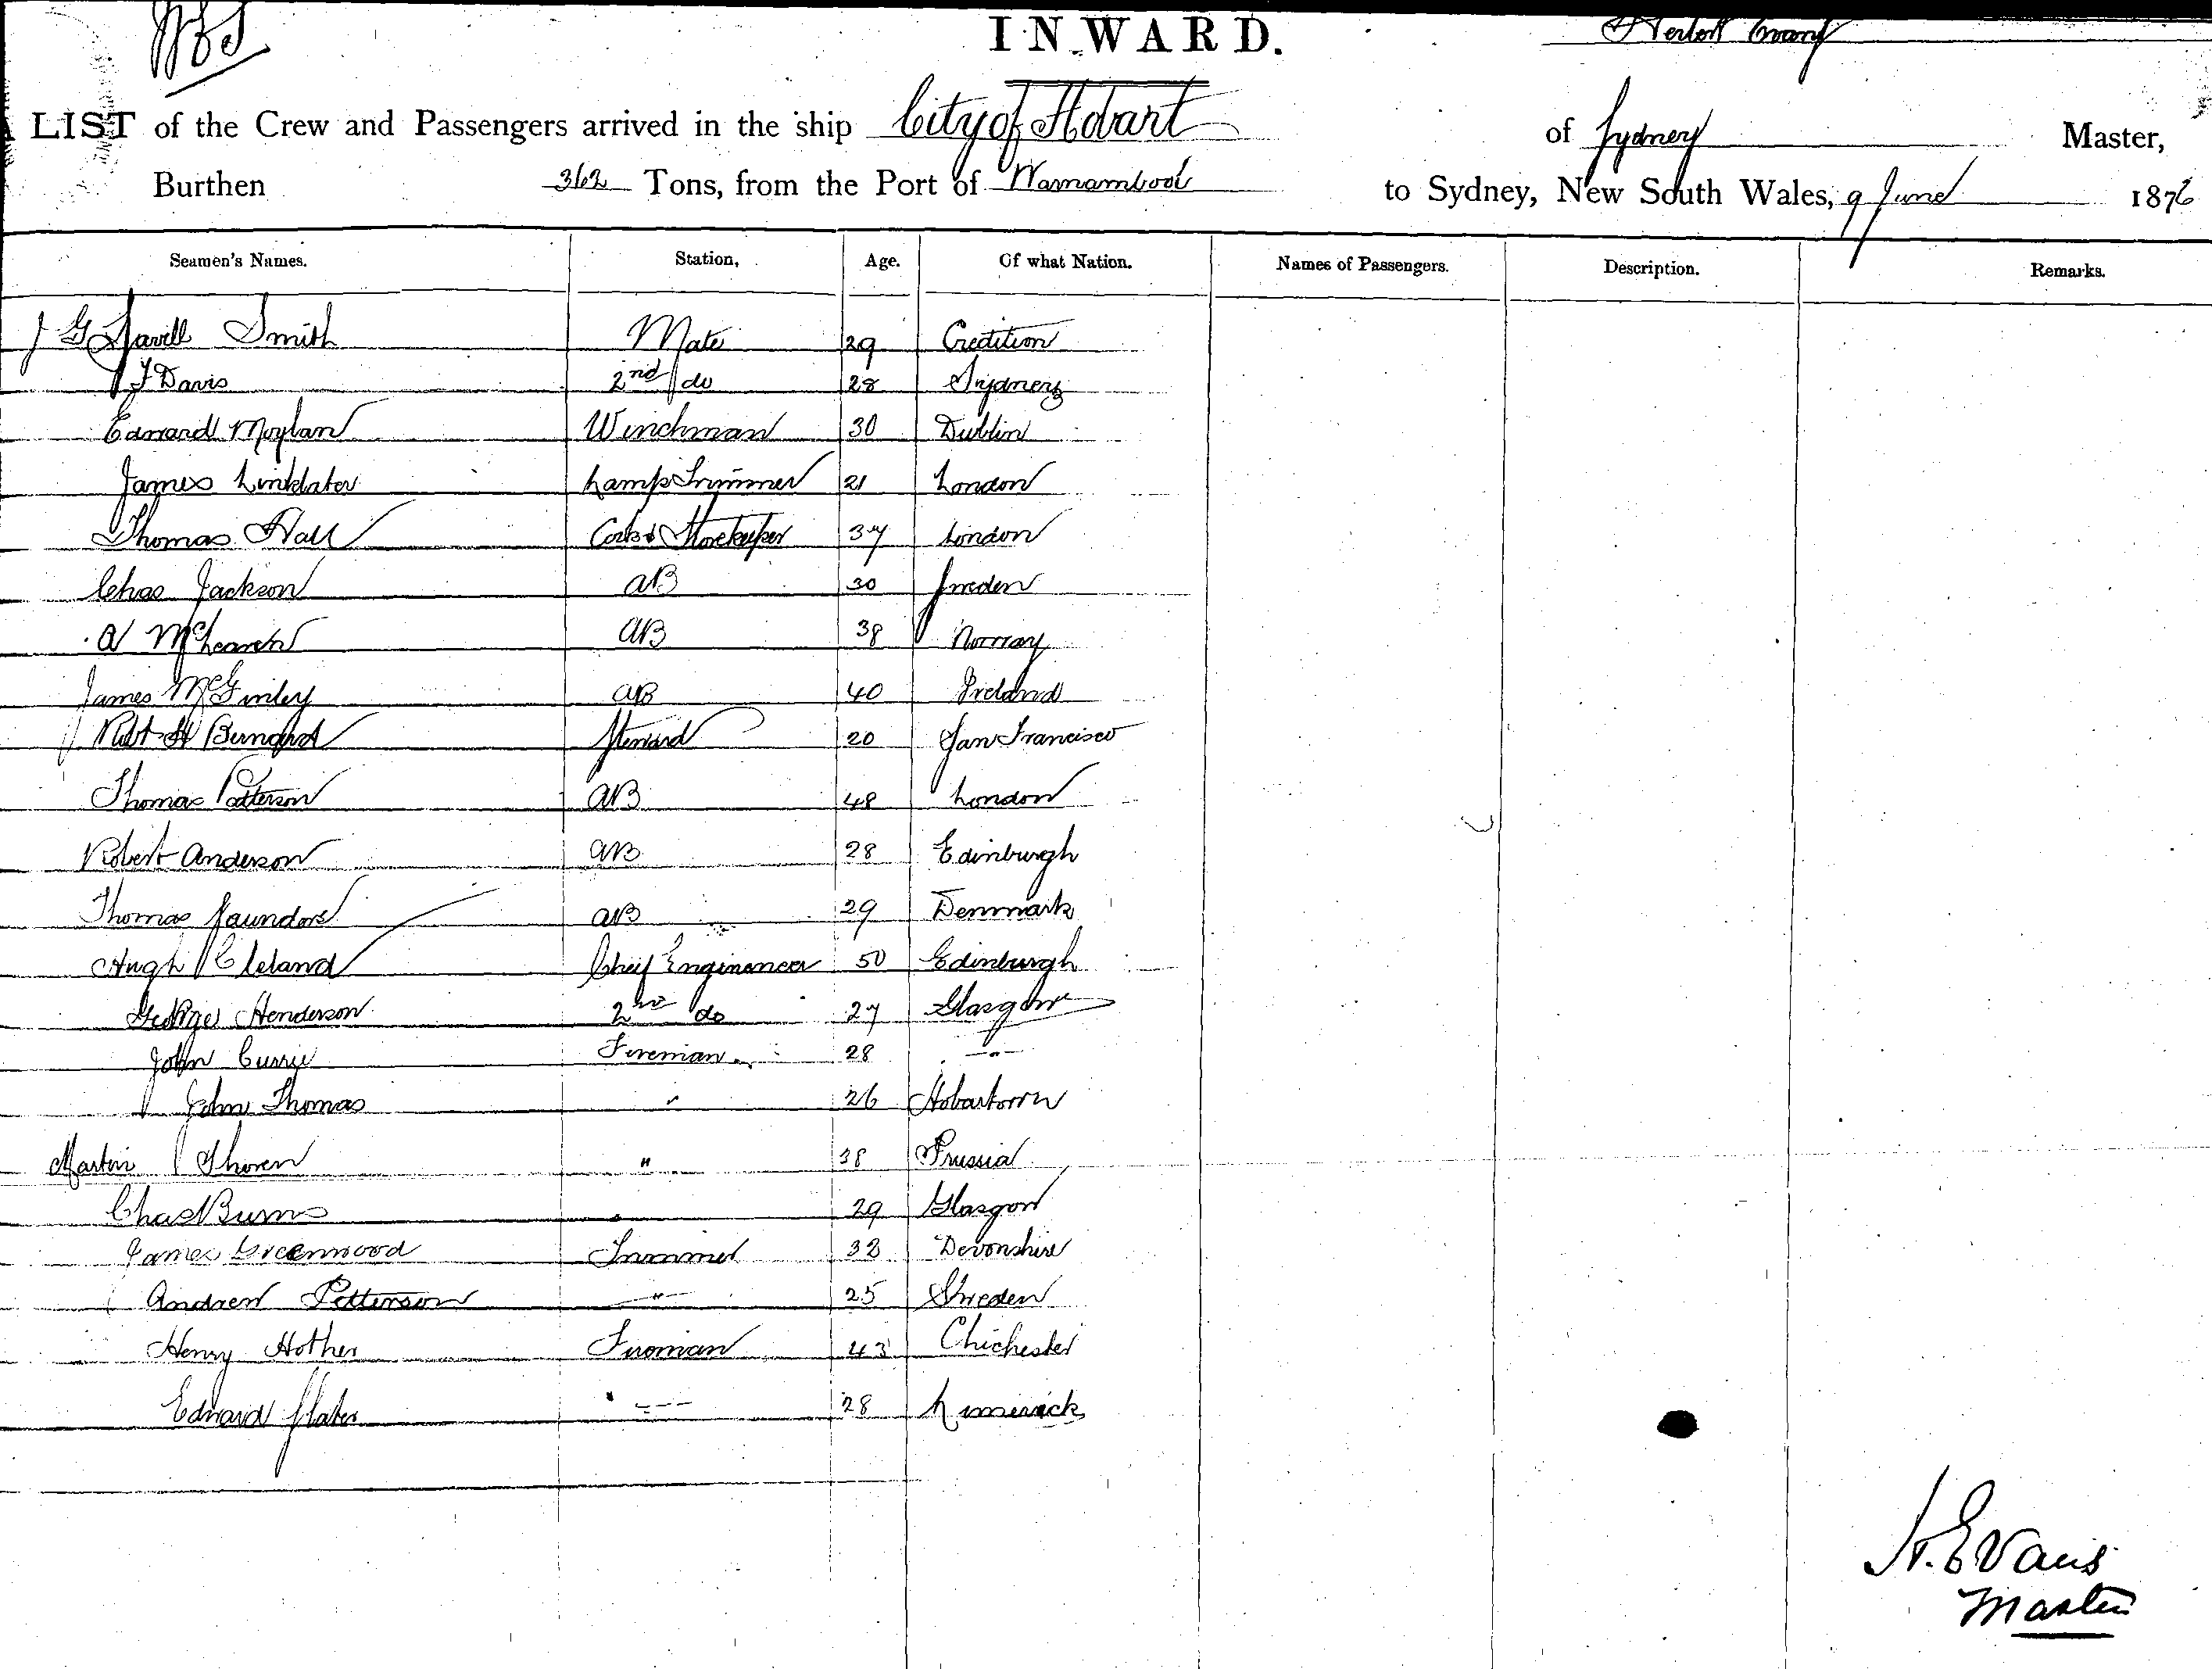 INWARD.
Herbert Evans
LIST of the Crew and Passengers arrived in the ship City of Hobart of Sydney Master,
Burthen 362 Tons, from the Port of Warnambool to Sydney, New South Wales, 9 June 1876
Seamen's Names. Station, Age. Of what Nation. Names of Passengers. Description. Remarks.
J G Smith Mate 29 Credition
J Davis 2nd do 28 Sydney
Edward Moylan Winchman 30 Dublin
James Linklater Lamp Trimmer 21 London
Thomas Hall Cook & Storekeeper 37 London
Chas Jackson AB 30 Sweden
A AB 38 Norway
James McGinley AB 40 Ireland
Robt H Bernard Steward 20 San Francisco
Thomas Patterson AB 48 London
Robert Anderson AB 28 Edinburgh
Thomas Saunders AB 29 Denmark
Hugh Cleland Cheif Engineneer 50 Edinburgh
George Henderson 2nd do 27 Glasgow
John Currie Fireman 28 -"-
John Thomas " 26 Hobartown
Martin Thoren " 38 Prussia
Chas Burns " 29 Glasgow
James Greenwood Trimmer 32 Devonshire
Andrew Petterson " 25 Sweden
Henry Hother Fireman 43 Chichester
Edward Slater " 28 Limerick
H. Evans
Master